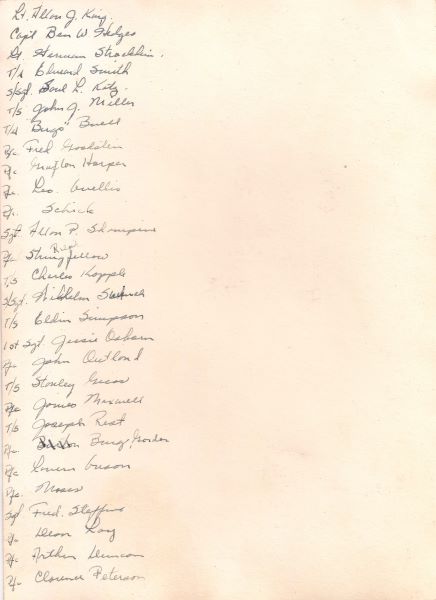 Lt. Alton J. King.
Capt Ben W Hedges
Lt. Herman
T/4 Edward Smith
S/Sgt. Saul L. Katz.
T/5 John J. Miller
T/4 "Bugs" Buell
Pfc Fred Goldstein
Pfc Grafton Harper
Pfc Leo.
Pfc. Schick
Sgt. Alton P.
Pfc Stringfellow
T/5 Charles Kopple
S/Sgt. Wilhelm
T/5 Eldin Simpson
1st Sgt. Jessie Osborn
Pfc John Outland
T/5 Stanley
Pfc James Maxwell
T/5 Joseph Rist
Pfc. Burg, Gordon
Pfc
Pfc. Moses
Sgt Fred. Steffens
Pfc Dean Long
Pfc Arthur Duncan
Pfc Clarence Peterson